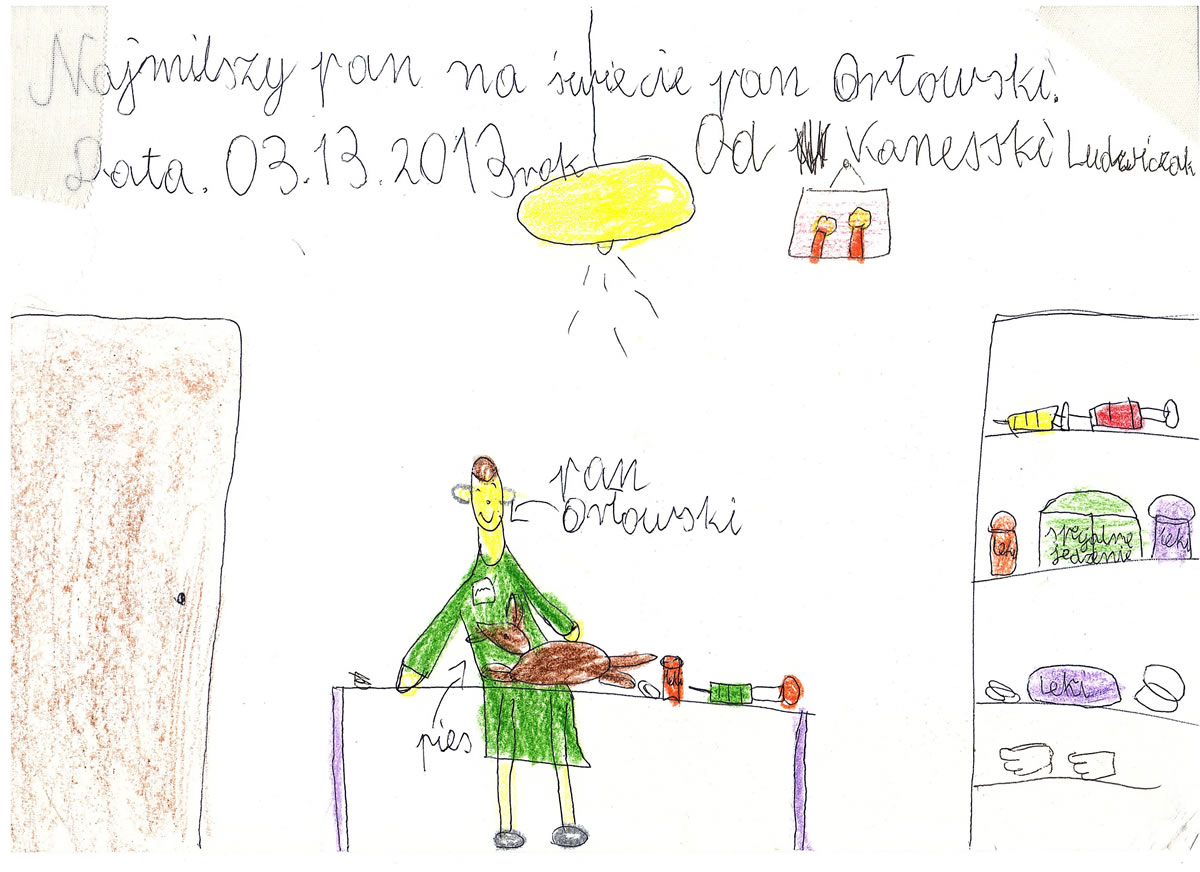 Najmilszy pan na świecie pan Orłowski.
Data. 03.13.2013 rok Od Kanesski Ludwiczak
pan
Orłowski
pies
leki
leki
spejalne
jedzenie
leki
leki